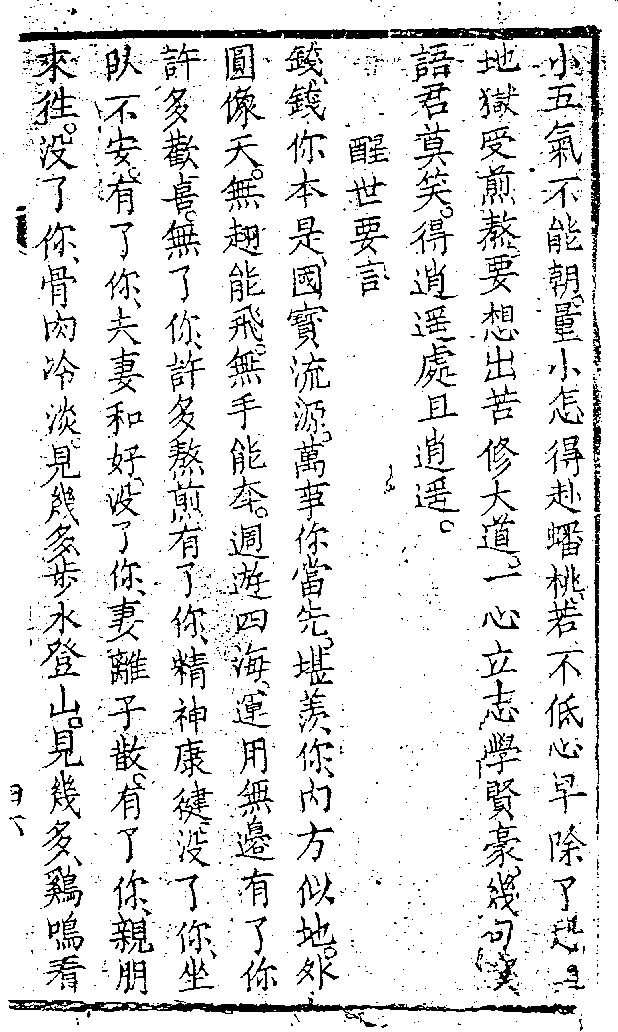 小五氣不能朝。量小怎得赴蟠桃。若不低心早除了
地獄受煎熬。要想出苦修大道。一心立志學賢豪。幾句
語君莫笑。得逍遥處且逍遥。
醒世要言
錢、錢你本是、國寶流源。萬事你當先。堪羨、你、內方似地。外
圓像天。無翅能飛。無手能奔。週遊四海。運用無邊有了你
許多歡喜。無了你、許多熬煎。有了你、精神康健。没了你、坐
臥不安。有了你、夫妻和好。没了你、妻離子散。有了你、親朋
來往。没了你、骨肉冷淡。見幾多、步水登山。見幾多、鷄鳴看